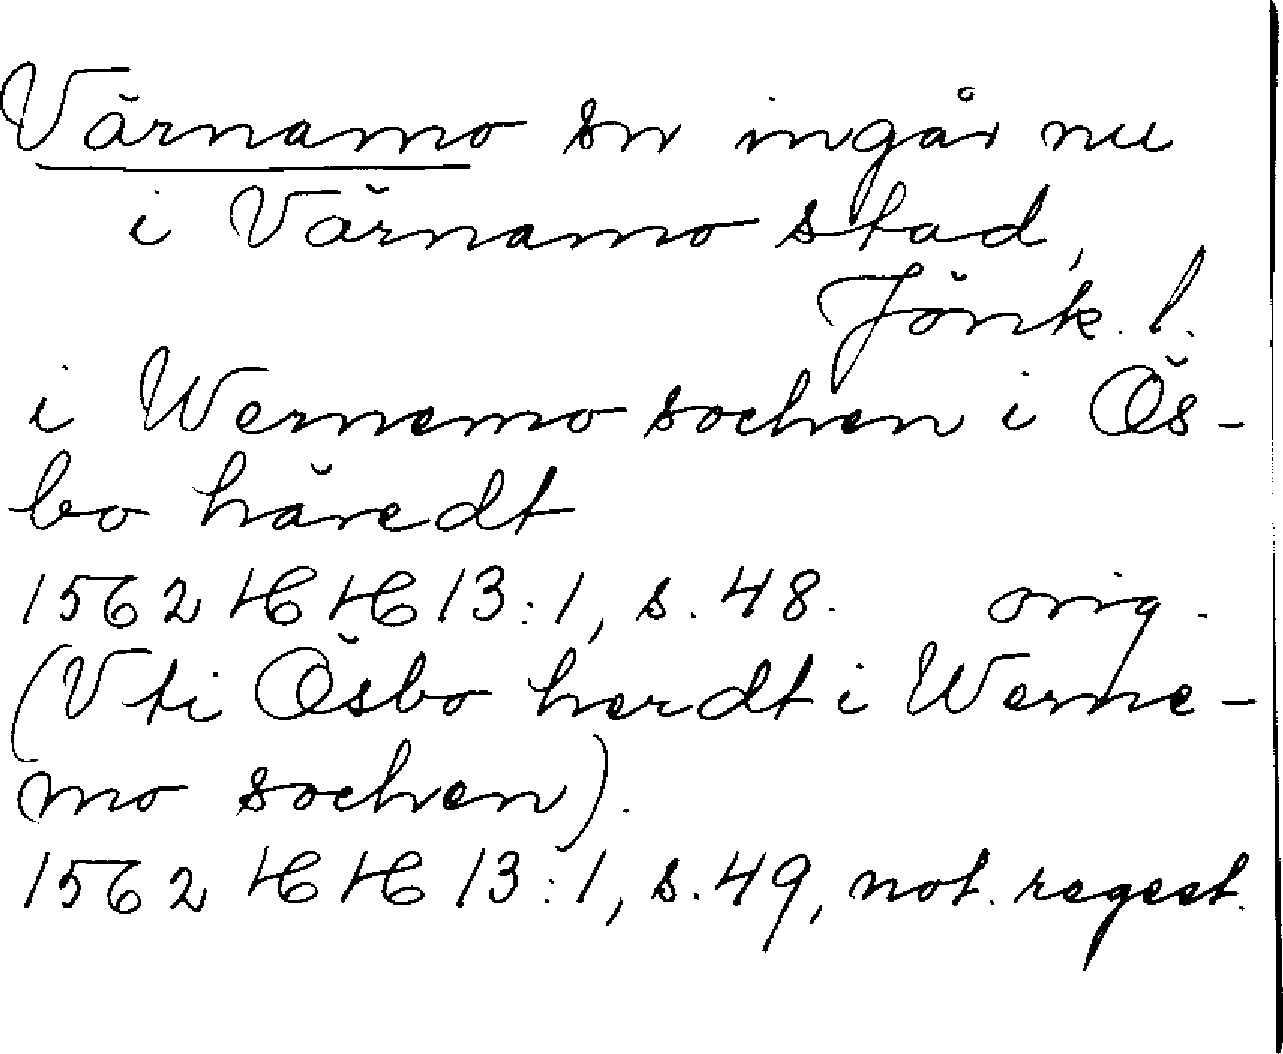 Värnamo sn ingår nu
i Värnamo stad,
Jönk. l.
i Wernemo sochen i Ös-
bo häredt
1562 HH 13:1, s. 48. orig.
(Vti Ösbo herdt i Werne-
mo sochen).
1562 HH 13:1, s. 49, not. regest.